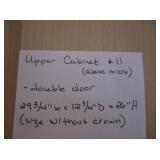 Upper Cabinet #11
(above micro)
- double door
29 3/4" W x 12 3/4" D x 26" H
(size without crown)